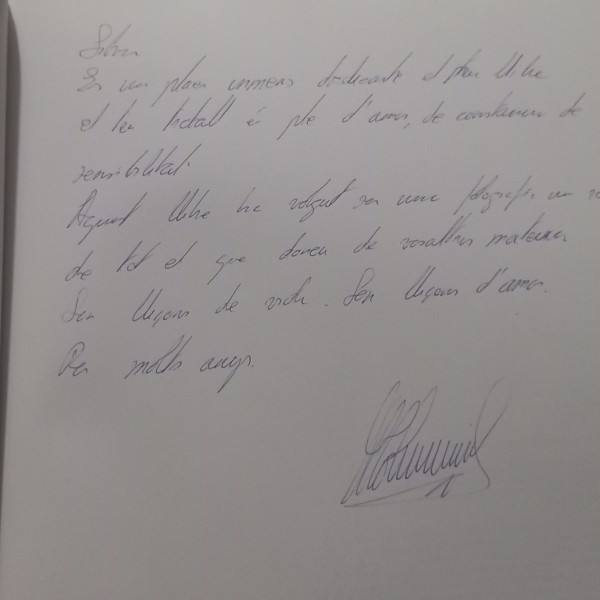 Silvia
És un plaer immens dedicarte el meu llibre
el teu treball és ple d'amor, de constancia de
sensibilitat.
Aquest llibre ha volgut ser una fotografia
de tot el que doneu de vosaltres mateixos
Sou lliçons de vida. Sou lliçons d'amor.
Per molts anys.